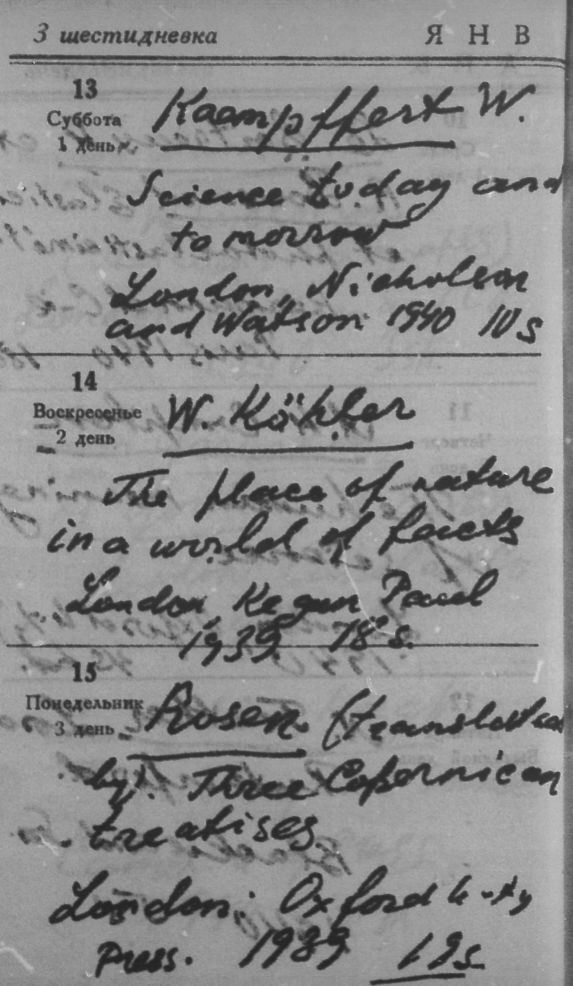 3 шестидневка ЯНВ
13
Суббота
1 день
Kaempffert W.
Science today and
tomorrow
London, Nicholson
and Watson 1940 10s
14
Воскресенье
2 день
W. Köhler
The place of nature
in a world of facts
London, Kegan Paul
1939 18s.
15
Понедельник
3 день
Rosen (translation
by). Three Copernican
treatises
London: Oxford U-ty
Press. 1939